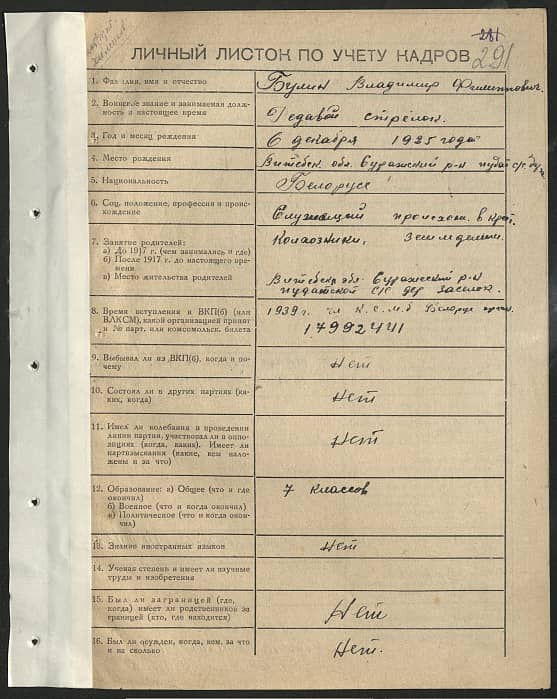 281
291
ЛИЧНЫЙ ЛИСТОК ПО УЧЕТУ КАДРОВ
1. Фамилия, имя и отчество
Булин Владимир Филиппович.
2. Воинское звание и занимаемая долж-
ность в настоящее время
Рядавой стрелок.
3. Год и месяц рождения
6 декабря 1925 года
4. Место рождения
Витебск. обл. Суражский р-н пудат с/с
5. Национальность
Белорусс
6. Соц. положение, профессия и проис-
хождение
Служащий происхож. в крест.
7. Занятие родителей:
а) До 1917 г. (чем занимались и где)
б) После 1917 г. до настоящего вре-
мени
в) Место жительства родителей
Колхозники, земледелие.
Витебск обл. Суражский р-н
пудатской с/с дер
8. Время вступления в ВКП(б) (или
ВЛКСМ), какой организацией принят
и № парт. или комсомольск. билета
1939 г. чл К.С.М.Б. Белорус орган.
17992441
9. Выбывал ли из ВКП(б), когда и по-
чему
Нет
10. Состоял ли в других партиях (ка-
ких, когда)
Нет
11. Имел ли колебания в проведении
линии партии, участвовал ли в оппо-
зициях (когда, каких). Имеет ли
партвзыскания (какие, кем нало-
жены и за что)
Нет
12. Образование: а) Общее (что и где
окончил)
б) Военное (что и когда окончил)
в) Политическое (что и когда окон-
чил)
7 классов
13. Знание иностранных языков
Нет
14. Ученая степень и имеет ли научные
труды и изобретения
15. Был ли заграницей (где,
когда) имеет ли родственников за
границей (кто, где находится)
Нет
16. Был ли осужден, когда, кем, за что
и на сколько
Нет.